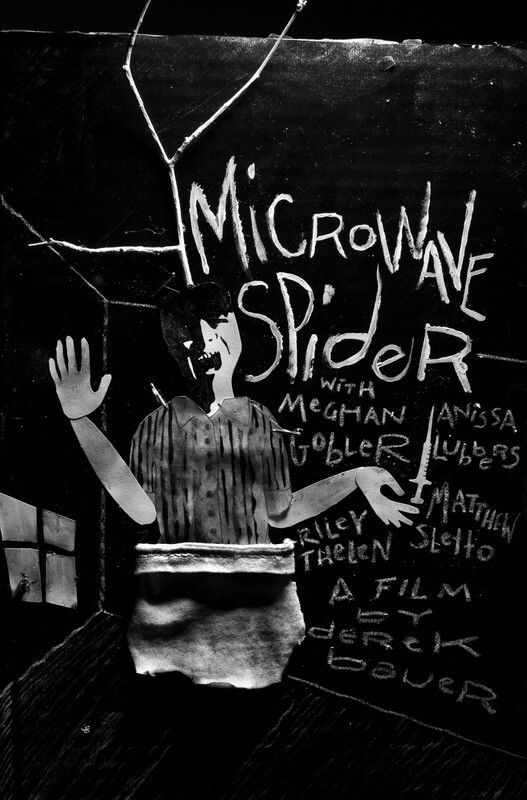 MiCRoWAVE
SPideR
WiTH
MeGHAN
GobleR
ANiSSA
LubbeRS
RiLeY
THeleN
MATTHeW
Sletto
A FiLM
bY
dereK
baueR